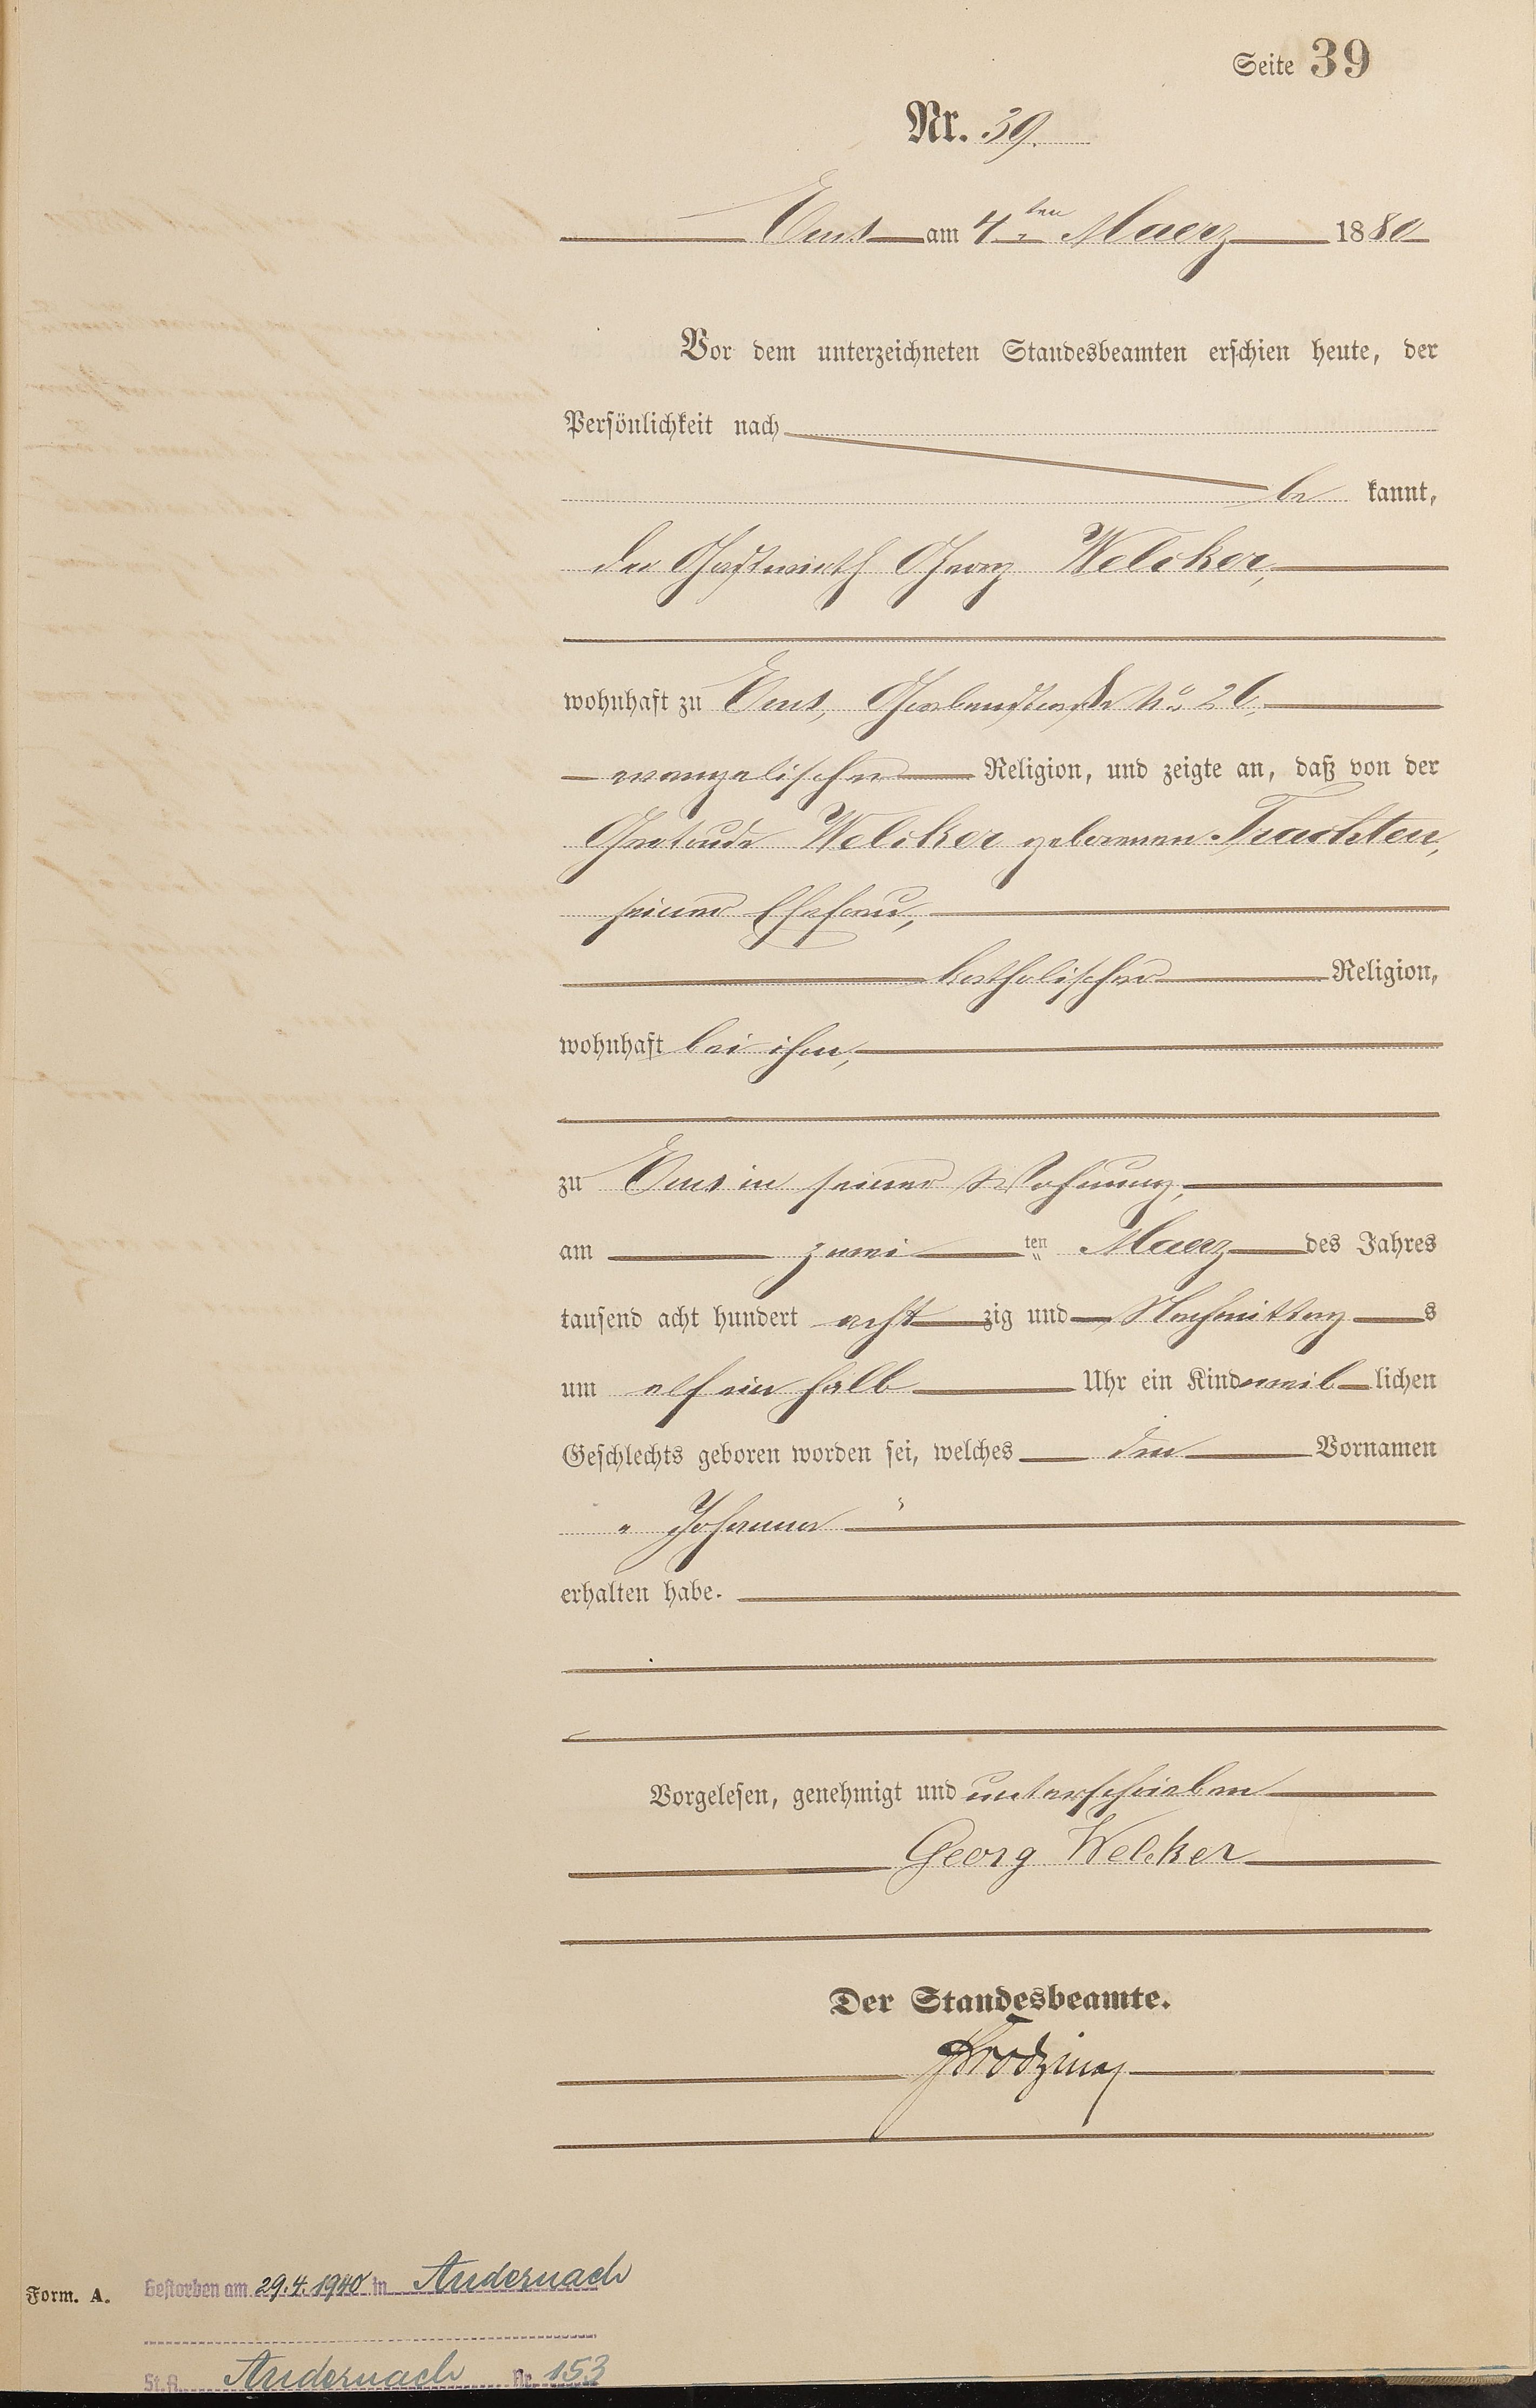 Seite 39
Nr. 39.
Ems am 4ten Maerz 1880
Vor dem unterzeichneten Standesbeamten erschien heute, der
Persönlichkeit nach
be kannt,
der Gastwirth Georg Welcker,
wohnhaft zu Ems, No 26,
evangelischer Religion, und zeigte an, daß von der
Gertrude Welcker geborenen Trachten,
seiner Ehefrau,
katholischer Religion,
wohnhaft bei ihm,
zu Ems in seiner Wohnung,
am zwei ten Maerz des Jahres
tausend acht hundert acht zig und Nachmittag s
um elf ein halb Uhr ein Kind weib lichen
Geschlechts geboren worden sei, welches den Vornamen
„ Johanna "
erhalten habe.
Vorgelesen, genehmigt und unterschrieben
Georg Welcker
Der Standesbeamte.
Form. A.
Gestorben am 29.4.1940 in Andernach
St.A. Andernach Nr. 153